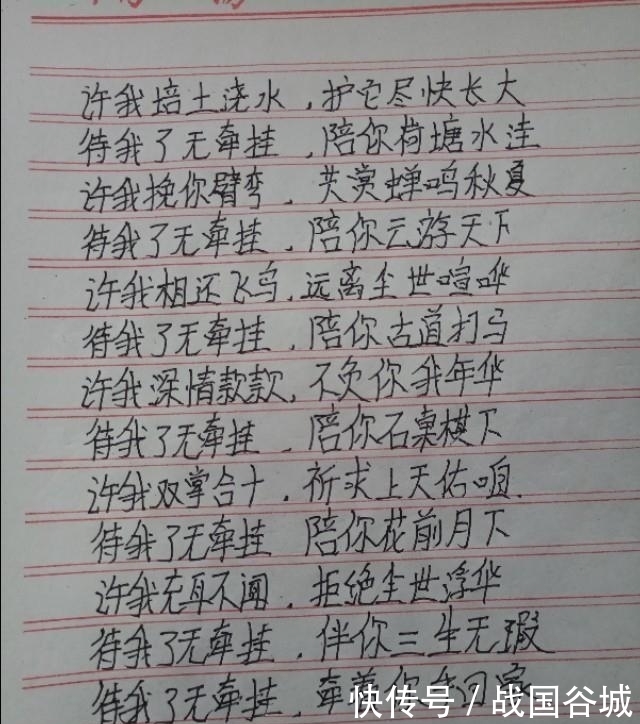 许我培土浇水，护它尽快长大
待我了无牵挂，陪你荷塘水洼
许我挽你臂弯，共赏蝉鸣秋夏
待我了无牵挂，陪你云游天下
许我相还飞鸟，远离尘世喧哗
待我了无牵挂，陪你古道打马
许我深情款款，不负你我年华
待我了无牵挂，陪你石桌棋下
许我双掌合十，祈求上天佑咱.
待我了无牵挂 陪你花前月下
许我充耳不闻，拒绝尘世浮华
待我了无牵挂，伴你三生无瑕
待我了无牵挂，牵着你我回家
快传号/战国谷城